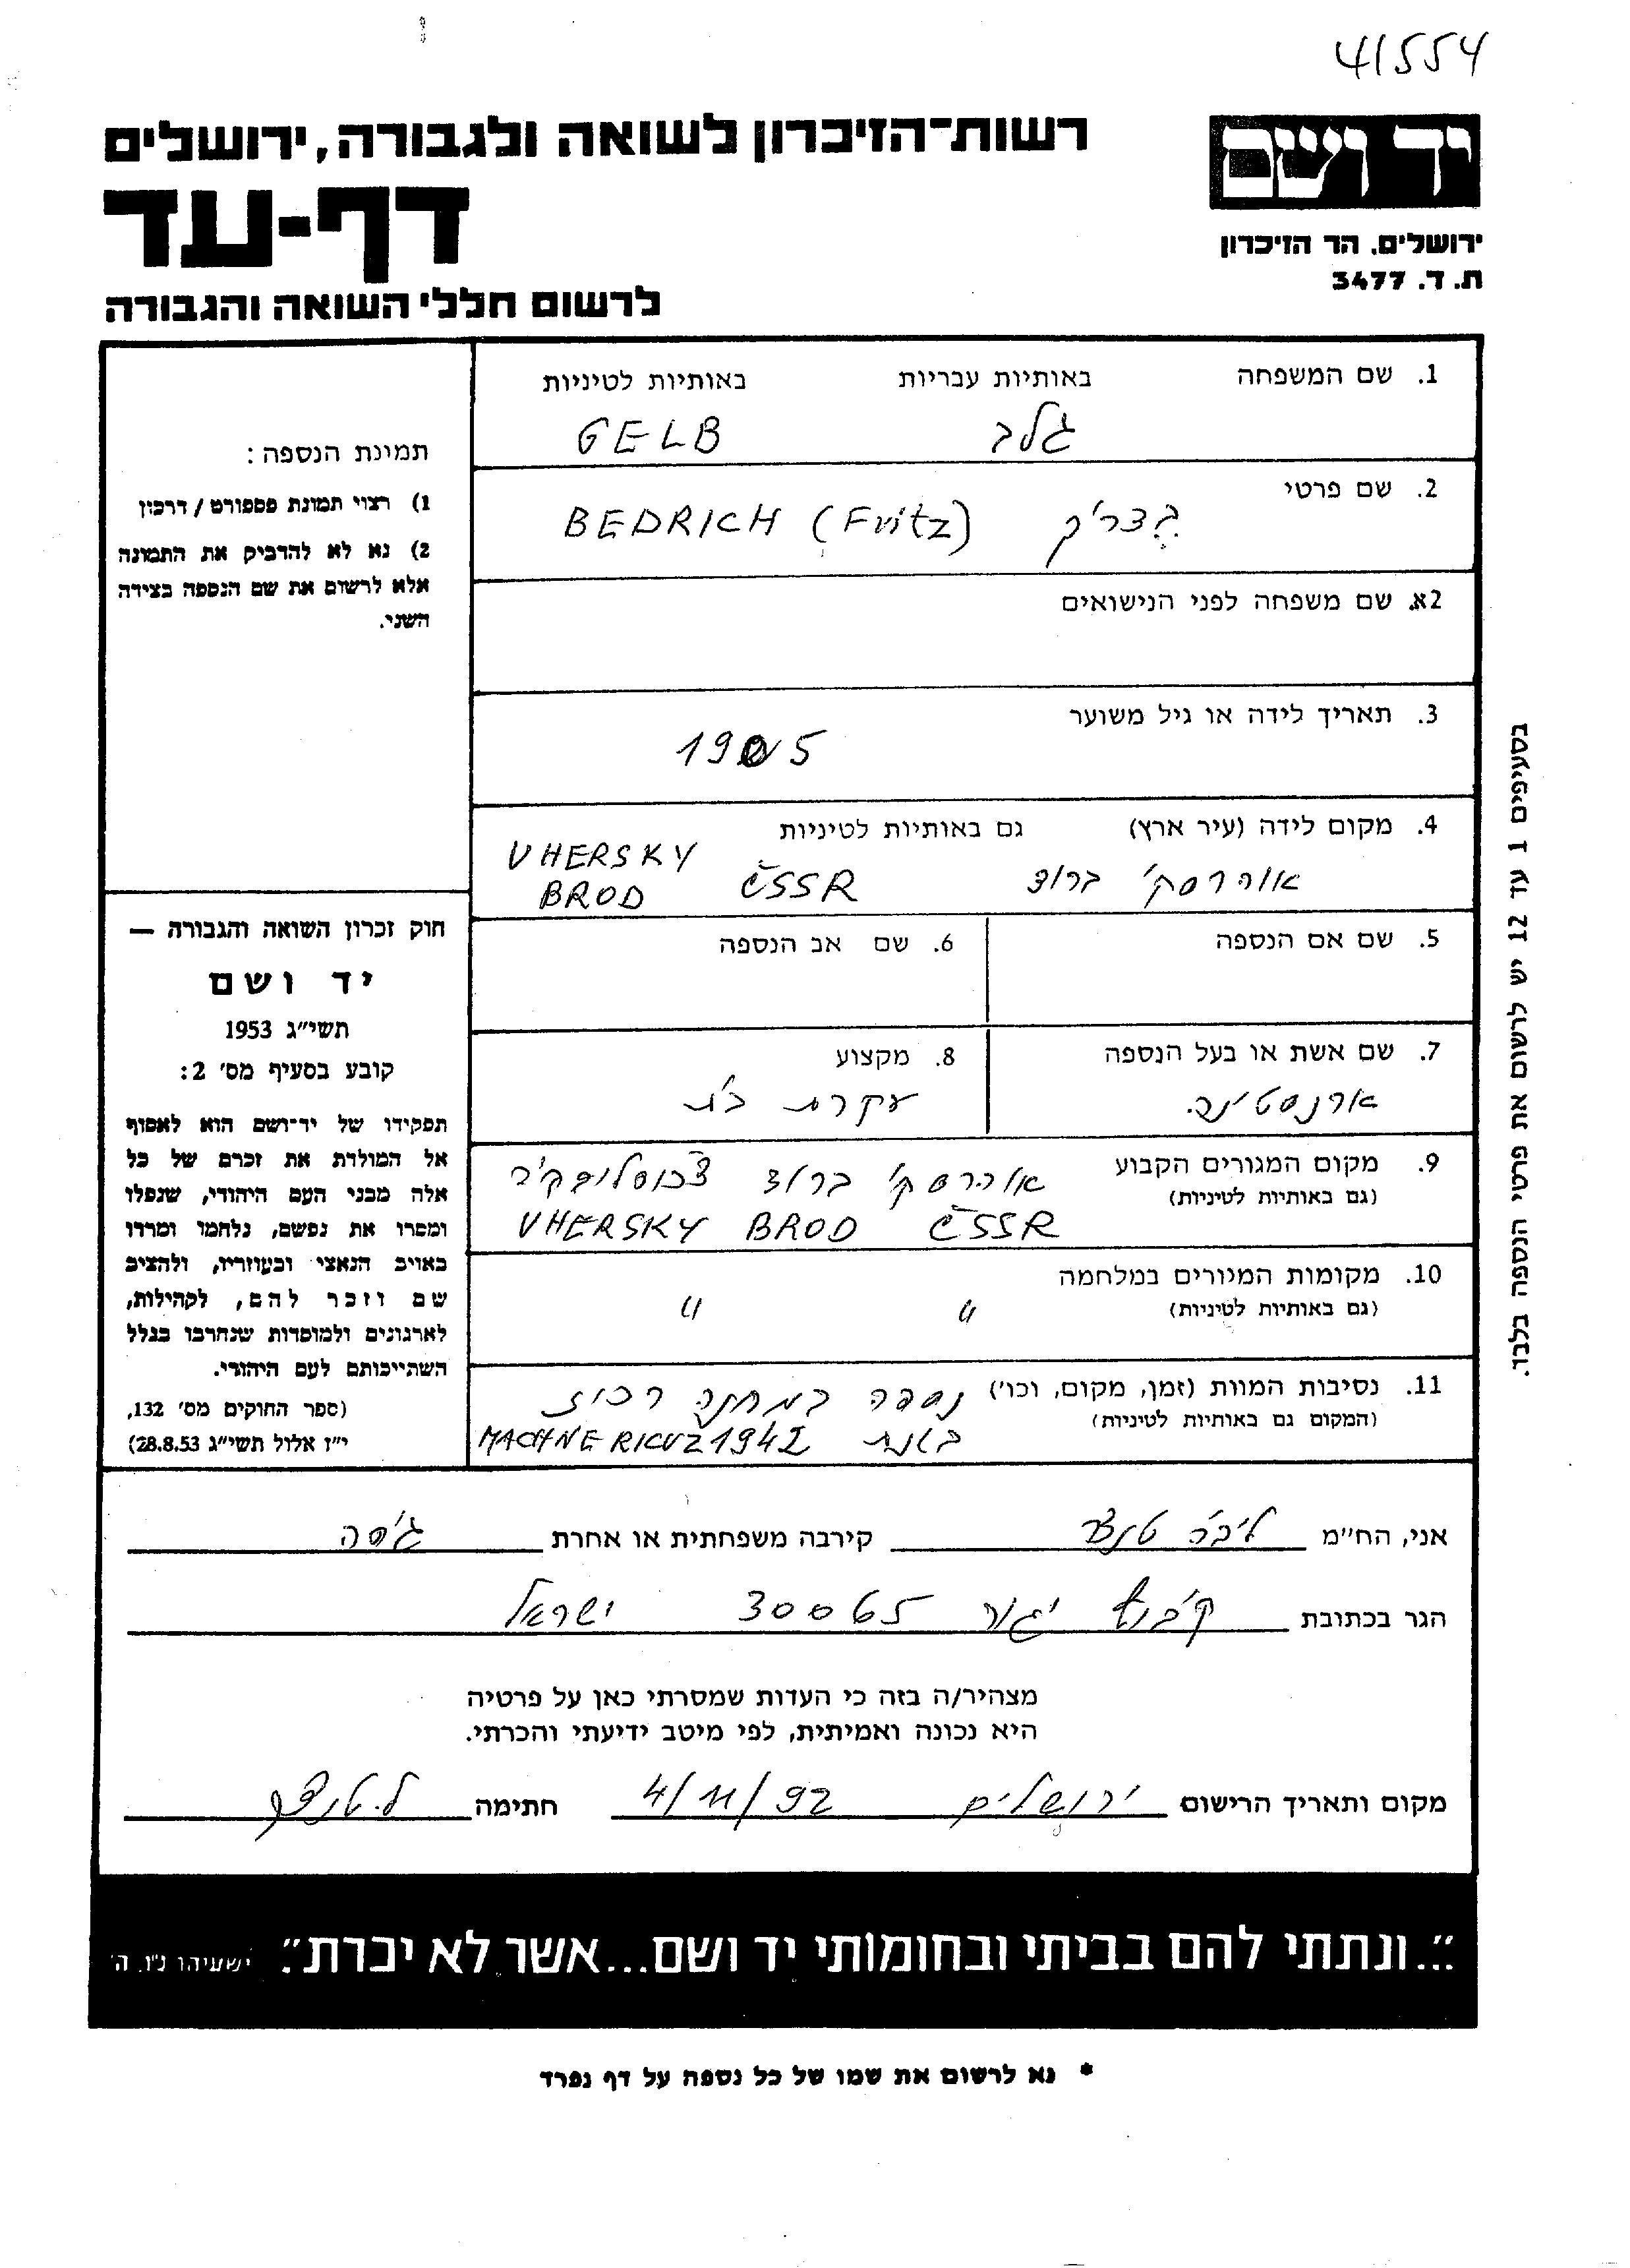 41554
יד ושם
רשות־הזיכרון לשואה ולגבורה, ירושלים
דף-עד
ירושלים, הר הזיכרון
ת. ד. 3477
לרשום חללי השואה והגבורה
1. שם המשפחה באותיות עבריות באותיות לטיניות
גלב GELB
2. שם פרטי
בדריק BEDRICH (Fritz)
2א. שם משפחה לפני הנישואים
3. תאריך לידה או גיל משוער
1905
4. מקום לידה (עיר ארץ) גם באותיות לטיניות
אוהרסקי ברוד VHERSKY
BROD ČSSR
5. שם אם הנספה 6. שם אב הנספה
7. שם אשת או בעל הנספה 8. מקצוע
ארנסטינה עקרת בית
9. מקום המגורים הקבוע אוהרסקי ברוד
(גם באותיות לטיניות)
VHERSKY BROD ČSSR
10. מקומות המגורים במלחמה
(גם באותיות לטיניות) " "
11. נסיבות המוות (זמן, מקום, וכו') נספה במחנה רכוז
(המקום גם באותיות לטיניות)
בשנת 1942 MACHNE RICUZ
תמונת הנספה:
1) רצוי תמונת פספורט / דרכון
2) נא לא להדביק את התמונה
אלא לרשום את שם הנספה בצידה
השני.
חוק זכרון השואה והגבורה —
יד ושם
תשי"ג 1953
קובע בסעיף מס' 2:
תפקידו של יד־ושם הוא לאסוף
אל המולדת את זכרם של כל
אלה מבני העם היהודי, שנפלו
ומסרו את נפשם, נלחמו ומרדו
באויב הנאצי ובעוזריו, ולהציב
שם וזכר להם, לקהילות,
לארגונים ולמוסדות שנחרבו בגלל
השתייכותם לעם היהודי.
(ספר החוקים מס' 132,
י"ז אלול תשי"ג 28.8.53)
בסעיפים 1 עד 12 יש לרשום את פרטי הנספה בלבד.
אני, הח"מ קירבה משפחתית או אחרת גיסה
הגר בכתובת קיבוץ יגור 30065 ישראל
מצהיר/ה בזה כי העדות שמסרתי כאן על פרטיה
היא נכונה ואמיתית, לפי מיטב ידיעתי והכרתי.
מקום ותאריך הרישום ירושלים 4/11/92 חתימה
"...ונתתי להם בביתי ובחומותי יד ושם...אשר לא יכרת". ישעיהו נ"ו, ה'
* נא לרשום את שמו של כל נספה על דף נפרד